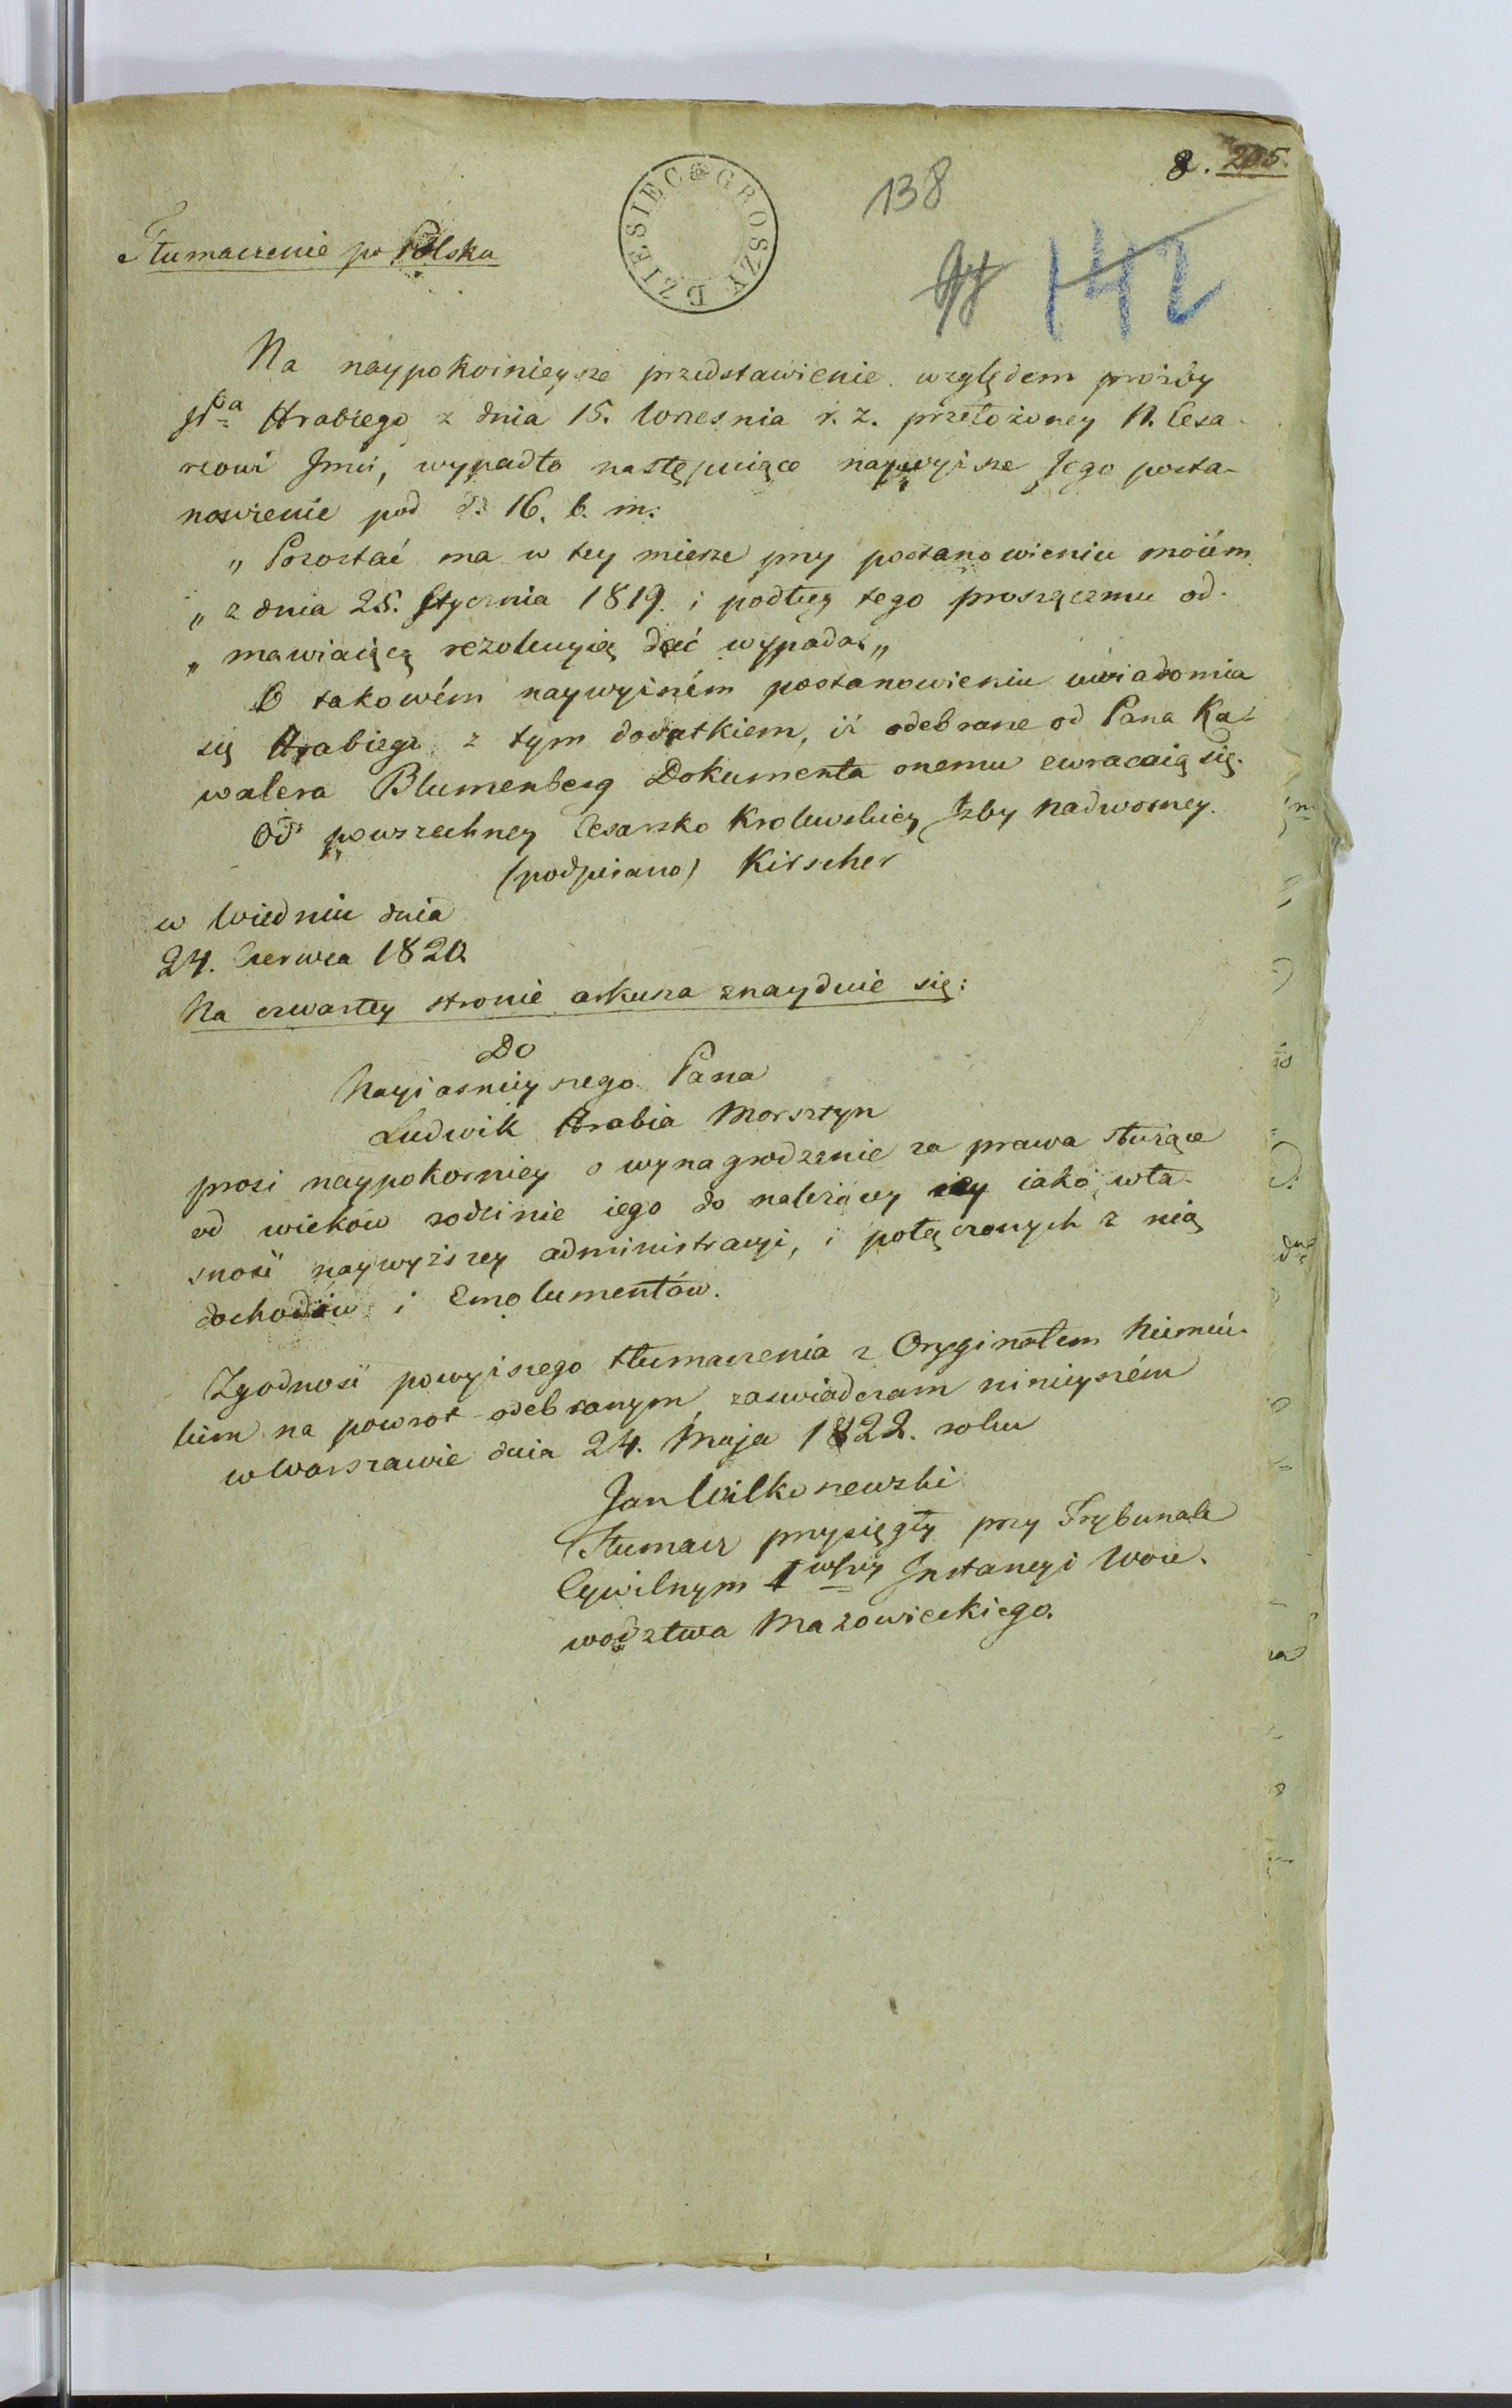 8. 205.
138
142
DZIESIEC GROSZY
Tłumaczenie po Polsku
Na naypokornieysze przedstawienie względem prozby
JPa Hrabiego z dnia 15. Wrzesnia r. z. przełożoney N. Cesa-
rzowi Jmci, wypadło następuiące naywyzsze Jego posta-
nowienie pod d. 16. b. m:
„ Pozostać ma w tey mierze przy postanowieniu moiém
„ z dnia 25. Stycznia 1819. i podług tego proszącemu od-
„ mawiaiącą rezolucyią dać wypada „
O takowém naywyższém postanowieniu uwiadomia
się Hrabiego z tym dodatkiem, iż odebrane od Pana Ka-
walera Blumenberg Dokumenta onemu zwracaią się.
Od powszechney Cesarsko Krolewskiey Izby nadworney.
(podpisano) Kirscher
w Wiedniu dnia
24. Czerwca 1820
Na czwartey stronie arkusza znayduie się:
Do
Nayiasnieyszego Pana
Ludwik Hrabia Morsztyn
prosi naypokorniey o wynagrodzenie za prawa służące
od wieków rodzinie iego do należącey iey iako wła-
sność naywyższey administracyi, i połączonych z nią
dochodów i Emolumentów.
Zgodność powyższego tłumaczenia z Oryginałem Niemiec-
kim na powrot odebranym, zaswiadczam ninieyszém
w Warszawie dnia 24. Maja 1822. roku
Jan Wilkoszewski
Tłumacz przysięgły przy Trybunale
Cywilnym 1wszy Instancyi Woie-
wodztwa Mazowieckiego.